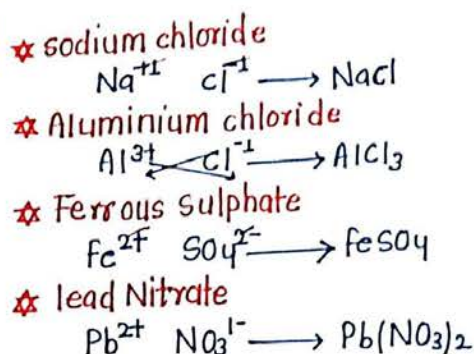 ☆ sodium chloride
Na⁺¹ Cl⁻¹ ⟶ NaCl
☆ Aluminium chloride
Al³⁺ Cl⁻¹ ⟶ AlCl₃
☆ Ferrous sulphate
Fe²⁺ SO₄²⁻ ⟶ FeSO₄
☆ lead Nitrate
Pb²⁺ NO₃¹⁻ ⟶ Pb(NO₃)₂